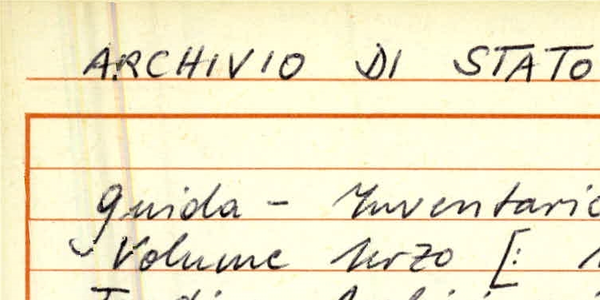 ARCHIVIO DI STATO
Guida - Inventario
Volume terzo [: